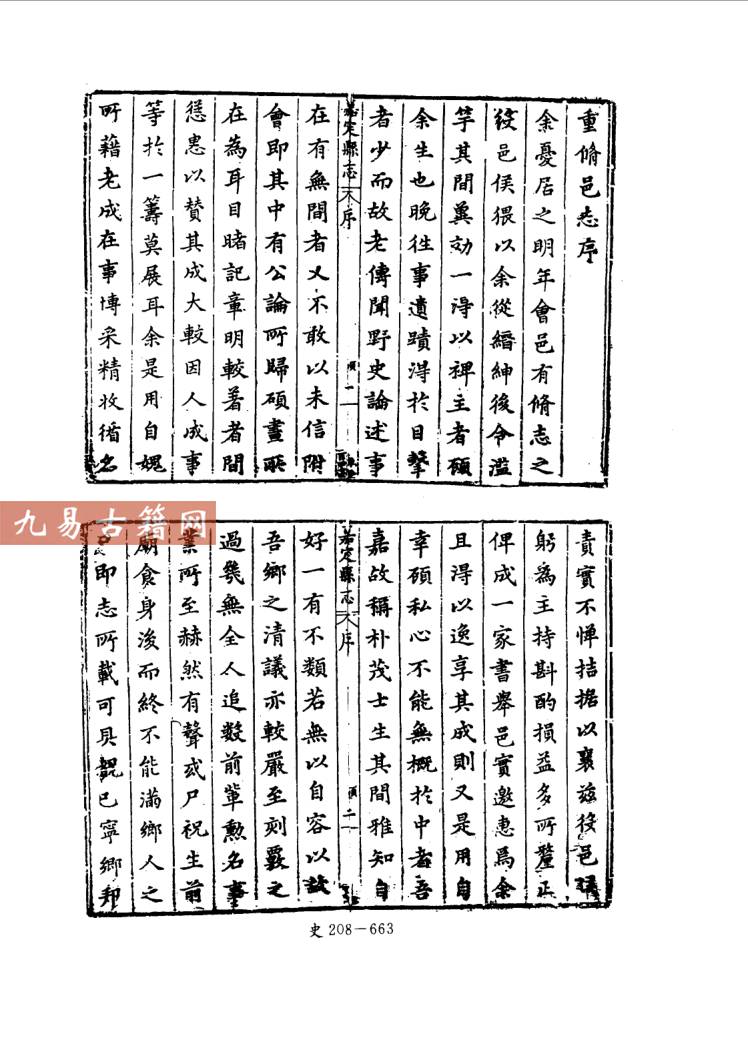 重脩邑志序
余憂居之明年會邑有脩志之
役邑侯猥以余從縉紳後令濫
竽其間冀効一得以裨主者顧
余生也晚往事遺蹟得於目擊
者少而故老傳聞野史論述事
嘉定縣志 序 一
在有無間者又不敢以未信附
會即其中有公論所歸碩畫所
在為耳目睹記章明較著者間
慫恿以贊其成大較因人成事
等於一籌莫展耳余是用自媿
所藉老成在事博采精收循名
責實不憚拮据以襄茲役邑侯
躬為主持斟酌損益多所釐正
俾成一家書舉邑實邀惠焉余
且得以逸享其成則又是用自
幸碩私心不能無概於中者吾
嘉故稱朴茂士生其間雅知自
嘉定縣志 序 二
好一有不類若無以自容以故
吾鄉之清議亦較嚴至刻覈之
過幾無全人追數前軰勲名事
業所至赫然有聲或尸祝生前
廟食身後而終不能滿鄉人之
即志所載可具覩已寧鄉邦
史 208－663
九易古籍网